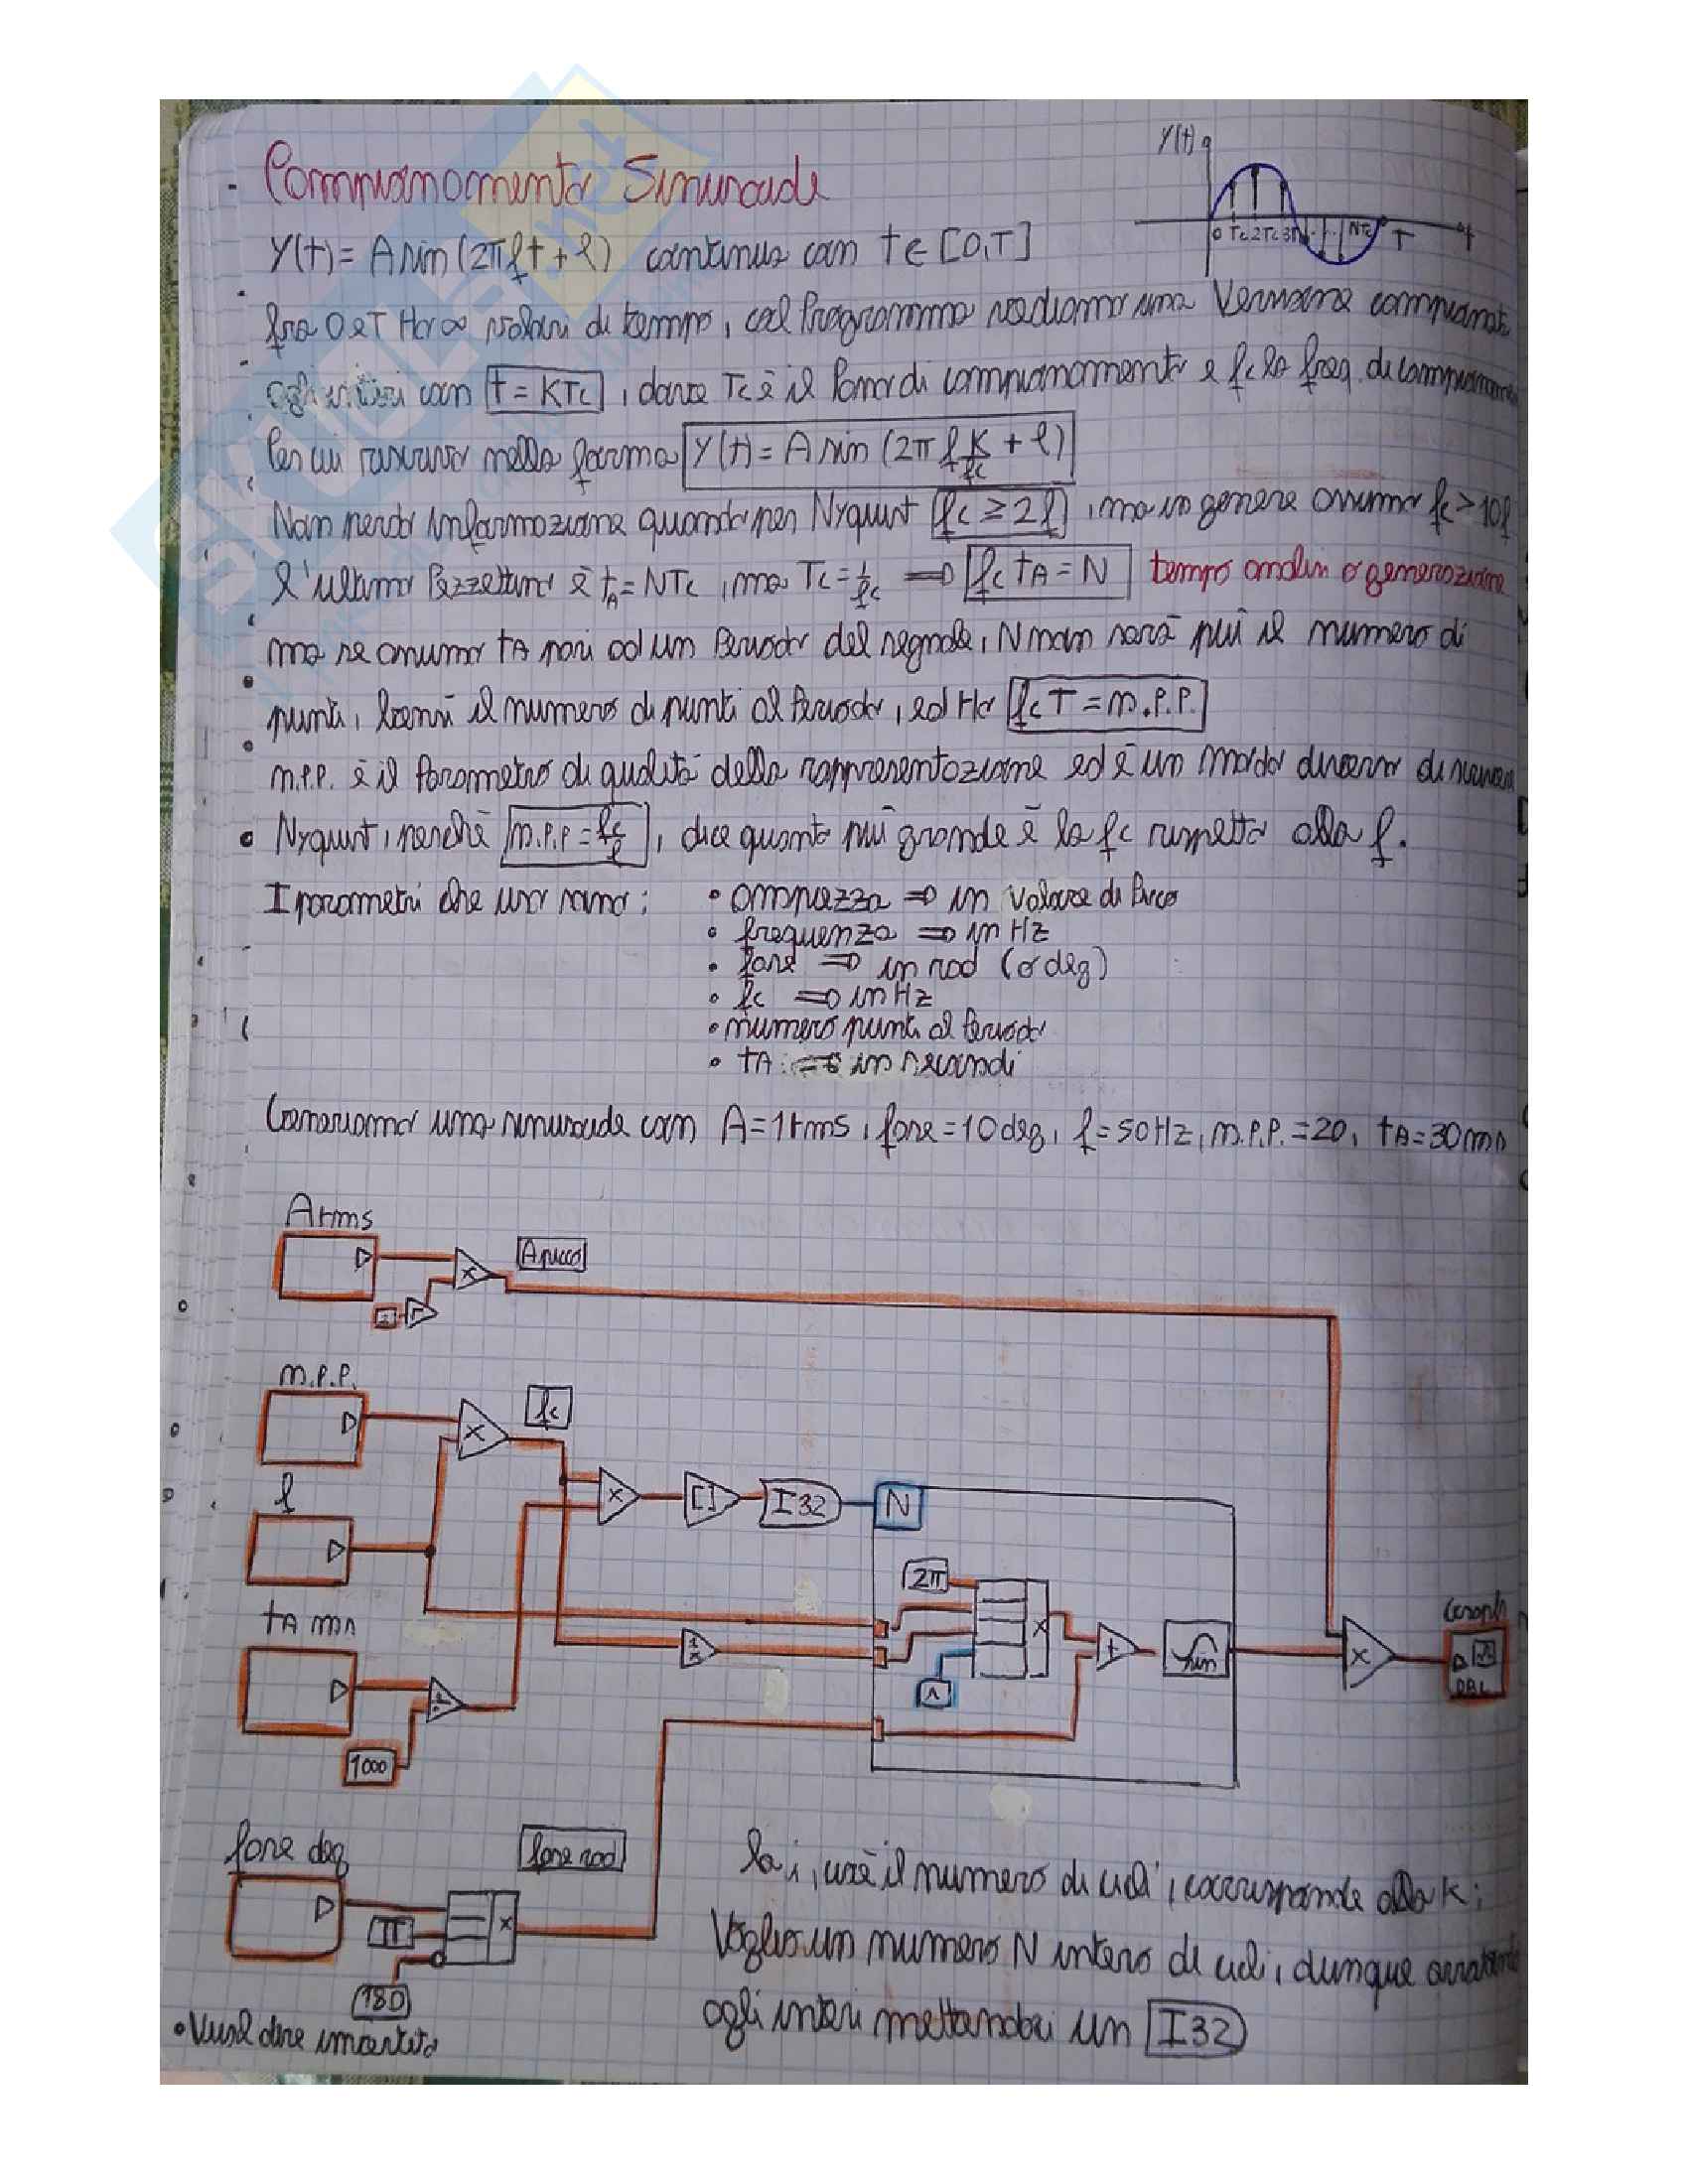 - Campionamento Sinusoide
Y(t)
0 Tc 2Tc 3Tc ... NTc T t
Y(t) = A sin (2πft + φ) continua con t ∈ [0,T]
fra 0 e T Ho ∞ valori di tempo, col Programma vediamo una Versione campionata
agli istanti con t = KTc, dove Tc è il Passo di campionamento e fc la freq. di campionamento
Per cui riscrivo nella forma Y(t) = A sin (2π f K/fc + φ)
Non perdo informazione quando per Nyquist fc ≥ 2f, ma in genere assumo fc > 10f
L'ultimo Pezzettino è tA = NTc, ma Tc = 1/fc ⇒ fc tA = N tempo analisi o generazione
ma se assumo tA pari ad un Periodo del segnale, N non sarà più il numero di
punti, bensì il numero di punti al Periodo, ed Ho fc T = n.P.P.
n.P.P. è il Parametro di qualità della rappresentazione ed è un modo diverso di
• Nyquist, perché n.P.P = fc/f, dice quanto più grande è la fc rispetto alla f.
I parametri che uso sono: • ampiezza ⇒ in valore di Picco
• frequenza ⇒ in Hz
• fase ⇒ in rad (o deg)
• fc ⇒ in Hz
• numero punti al Periodo
• tA ⇒ in secondi
Generiamo una sinusoide con A = 1rms, fase = 10deg, f = 50Hz, n.P.P. = 20, tA = 30ms
Arms
x
Apicco
2
n.P.P.
x
fc
f
x
[ ]
I32
N
2π
x
i
1/x
+
sin
x
Graph
DBL
tA ms
÷
1000
fase deg
fase rad
π
x
180
• Vuol dire invertito
La i, cioè il numero di cicli, corrisponde alla K;
Voglio un numero N intero di cicli, dunque arrotondo
agli interi mettendoci un I32
SKUOLA.net